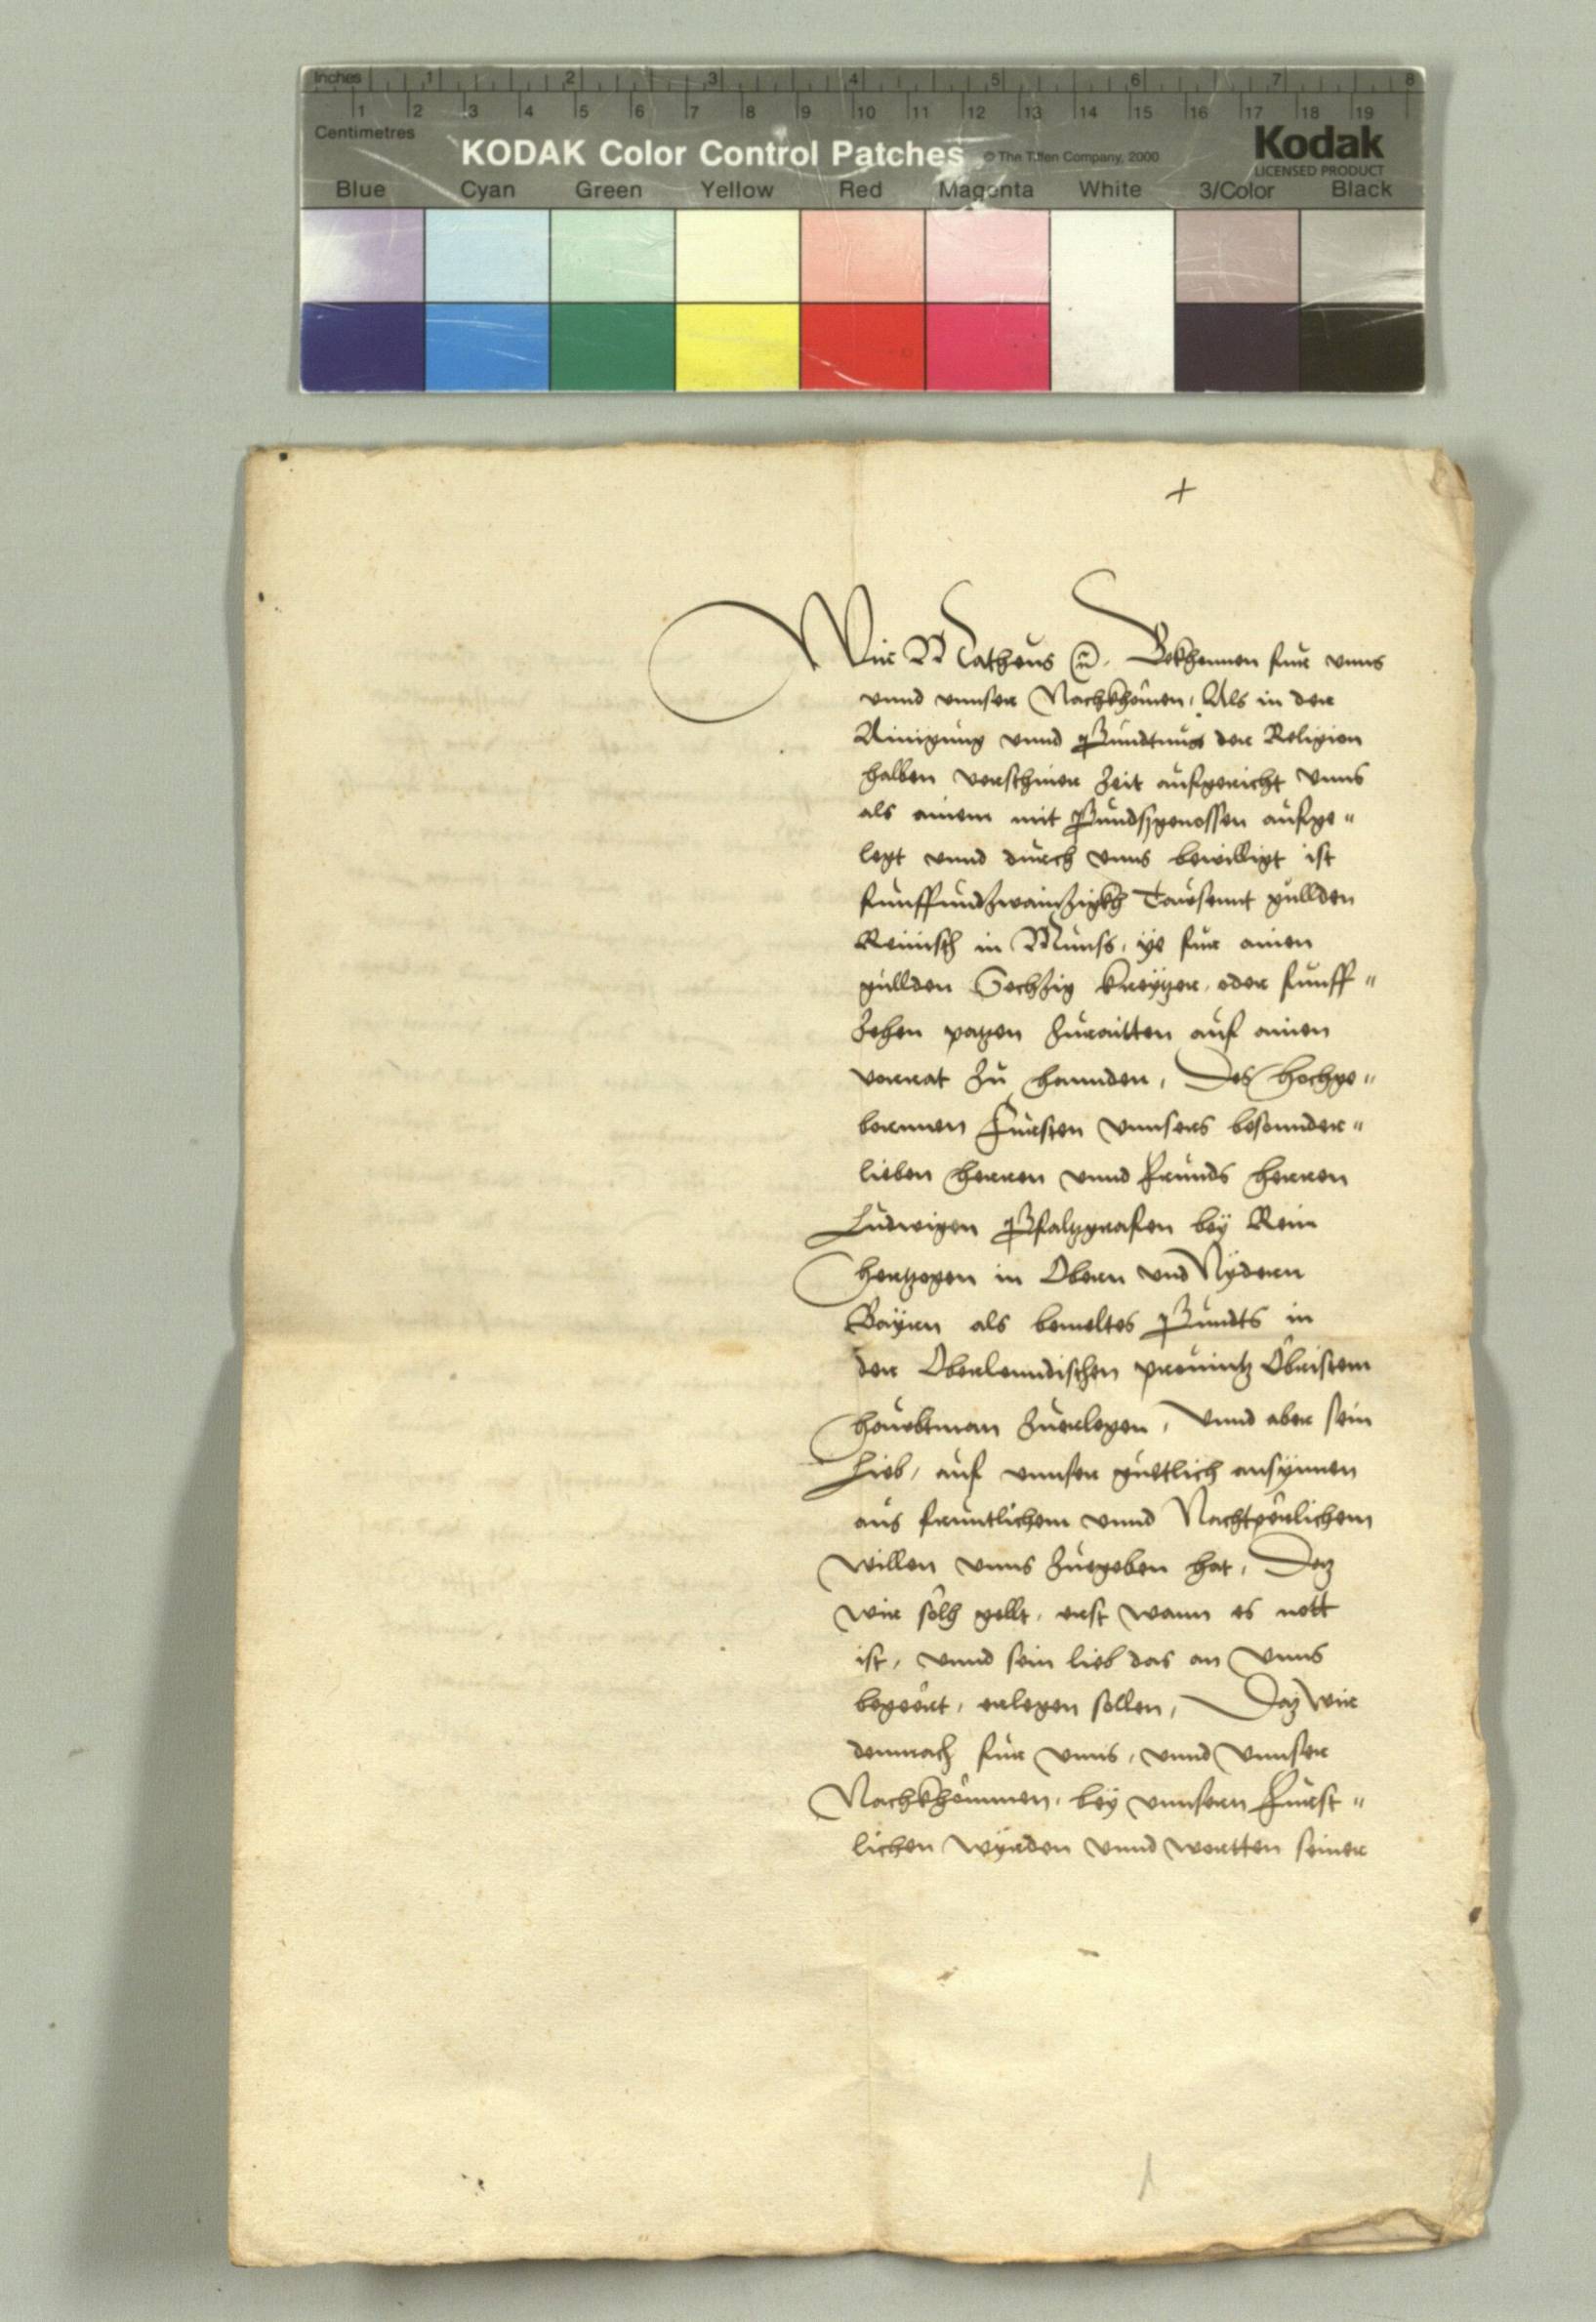 Inches 1 2 3 4 5 6 7 8
1 2 3 4 5 6 7 8 9 10 11 12 13 14 15 16 17 18 19
Centimetres
KODAK Color Control Patches © The Tiffen Company, 2000 Kodak
LICENSED PRODUCT
Blue Cyan Green Yellow Red Magenta White 3/Color Black
+
Wir Matheus Bekhennen fur vnns
vnnd vnnser Nachkhomen, Als in der
Ainigung vnnd Pundtnus der Religion
halben verschiner Zeit aufgericht vnns
als ainem mit Pundsgenossen aufge"
legt vnnd durch vnns bewilligt ist
funffundzwainzigkh Tausennt gullden
Reinisch in Munss, ye fur ainen
gullden Sechzig kreytzer, oder funff"
zehen patzen zuraitten auf ainen
vorrat zu hannden, Des hochge"
bornnen Fursten vnnsers besonnder"
lieben herren vnnd frunds herren
Ludwigen Pfaltzgrafen bey Rein
hertzogen in Obern vnd Nydern
Bayrn als bemeltes Pundts in
der Oberlenndischen prouintz Obristem
haubtman zuerlegen, Vnnd aber sein
Lieb, auf vnnser guetlich ansynnen
aus fruntlichem vnnd Nachtperlichem
willen vnns zuegeben hat, Daz
wir solh gellt, erst wann es nott
ist, vnnd sein lieb das an vnns
begeert, erlegen sollen, Daz wir
demnach fur vnns, vnnd vnnser
Nachkhommen, bey vnnsern Furst"
lichen wyrden vnnd wortten seiner
1